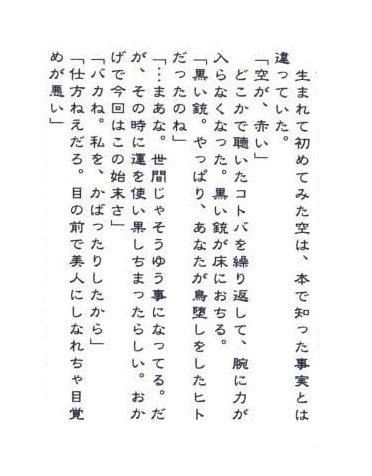 生まれて初めてみた空は、本で知った事実とは
違っていた。
「空が、赤い」
　どこかで聴いたコトバを繰り返して、腕に力が
入らなくなった。黒い銃が床におちる。
「黒い銃。やっぱり、あなたが鳥堕しをしたヒト
だったのね」
「…まあな。世間じゃそうゆう事になってる。だ
が、その時に運を使い果しちまったらしい。おか
げで今回はこの始末さ」
「バカね。私を、かばったりしたから」
「仕方ねえだろ。目の前で美人にしなれちゃ目覚
めが悪い」